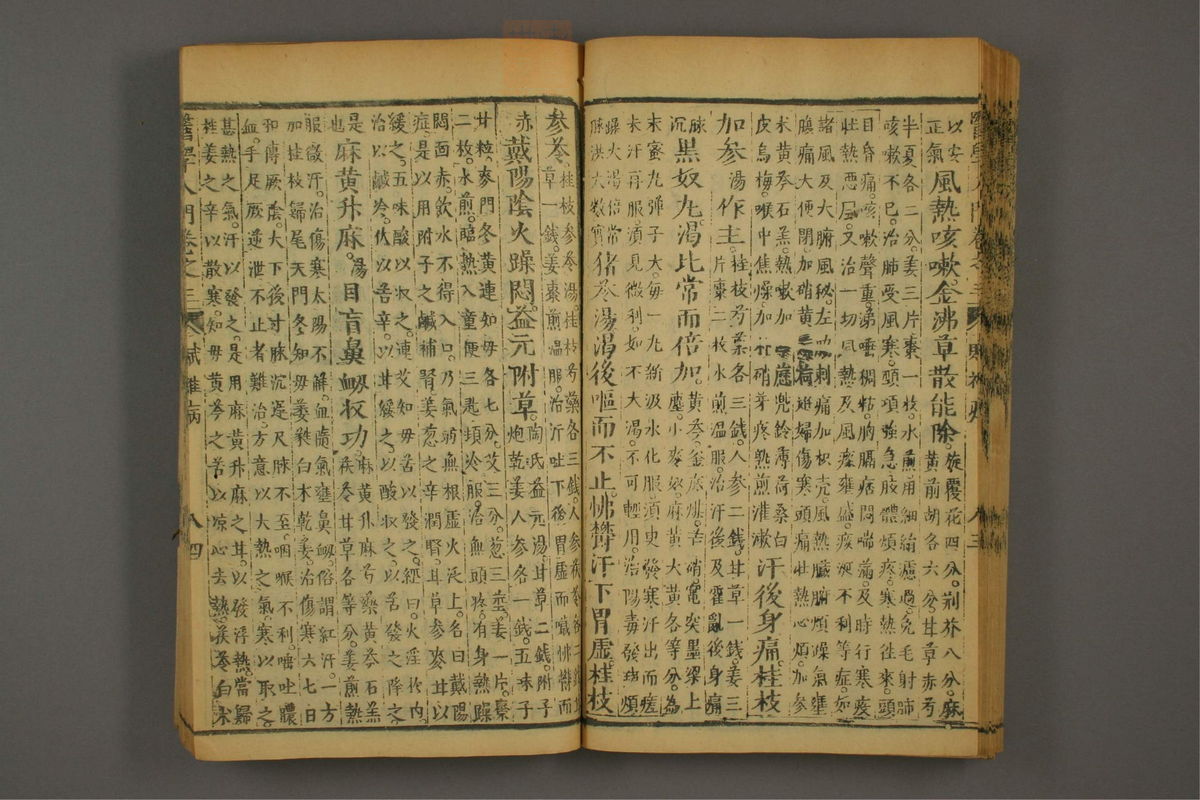 以安
正氣風熱咳嗽金沸草散能除旋覆花四分荆芥八分麻
黃前胡各六分甘草赤芍
半夏各二分姜三片棗一枚水煎用細絹濾過免毛射肺
咳嗽不已治肺受風寒頭項強急肢體煩疼寒熱徃來頭
目昏痛咳嗽聲重涕唾稠粘胸膈痞悶喘滿及時行寒疫
壯熱惡風又治一切風熱及風痰壅盛痰涎不利等症如
諸風及大腑風秘左 刺痛加枳壳風熱臟腑煩躁氣壅
膈痛大便閉加硝黃 姙婦傷寒頭痛壯熱心煩加參
术黃芩石羔熱嗽加 兜鈴薄荷桑白
皮烏梅喉中焦燥加朴硝芽疼熱煎漼漱汗後身痛桂枝
加參湯作主桂枝芍藥各三錢人參二錢甘草一錢姜三
片棗二枚水煎温服治汗後及霍亂後身痛
脉
沉黑奴丸渴比常而倍加黃芩釜底煤 突墨梁上
塵小麥奴麻黃大黃各等分為
末蜜丸弹子大每一丸新汲水化服須臾發寒汗出而瘥
未汗再服須見微利如不大渴不可輕用治陽毒發斑煩
躁大渴倍常
脉洪大数實猪苓湯渴後嘔而不止怫欝汗下胃虛桂枝
參苓桂枝參苓湯桂枝芍藥各三錢人參茯苓各二錢甘
草一錢姜棗煎温服治汗吐下後胃虛而噦怫欝而
赤戴陽陰火躁悶益元附草陶氏益元湯甘草二錢附子
炮乾姜人參各一錢五味子
廿粒麥門冬黃連知母各七分艾三分葱三莖姜一片棗
二枚水煎臨熱入童便三匙頓冷服治無頭疼有身熱躁
悶面赤飲水不得入口乃氣弱無根虛火泛上名曰戴陽
症是以用附子之鹹補腎姜葱之辛潤腎甘草參麥甘以
緩之五味酸以收之連艾知母苦以發之經曰火淫於內
治以鹹冷佐以苦辛以甘緩之以酸收之以苦發之降之
是
也麻黃升麻湯目盲鼻衂收功麻黃升麻芍藥黃芩石羔
茯苓甘草各等分姜煎熱
服微汗治傷寒太陽不解血隨氣壅鼻衂俗謂紅汗一方
加桂枝歸尾天門冬知母萎蕤白术乾姜治傷寒六七日
和傳厥陰大下後寸脉沉遲尺脉不至咽喉不利唾吐膿
血手足厥逆泄不止者難治方意以大熱之氣寒以取之
甚熱之氣汗以發之是用麻黃升麻之甘以發浮熱當歸
桂姜之辛以散寒知母黃芩之苦以凉心去熱茯苓白朮
醫學入門卷之三 賦雜病 八四